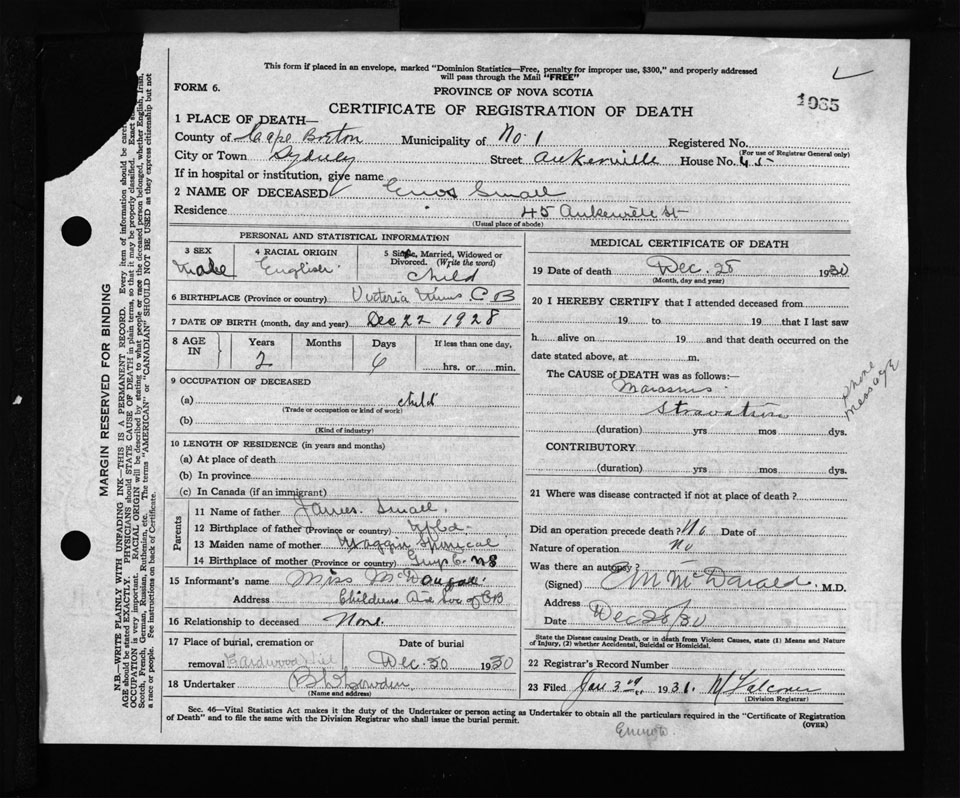 This form if placed in an envelope, marked "Dominion Statistics—Free, penalty for improper use, $300," and properly addressed
will pass through the Mail "FREE"
FORM 6.
PROVINCE OF NOVA SCOTIA
1935
CERTIFICATE OF REGISTRATION OF DEATH
1 PLACE OF DEATH—
County of Cape Breton Municipality of No. 1 Registered No.
(For use of Registrar General only)
City or Town Sydney Street Ankerville House No. 45
If in hospital or institution, give name
2 NAME OF DECEASED Enos Small
Residence 45 Ankerville St
(Usual place of abode)
PERSONAL AND STATISTICAL INFORMATION
3 SEX 4 RACIAL ORIGIN 5 Single, Married, Widowed or
Divorced. (Write the word)
Male English child
6 BIRTHPLACE (Province or country) Victoria Mines C B
7 DATE OF BIRTH (month, day and year) Dec 22 1928
8 AGE IN Years Months Days If less than one day,
2 6 hrs. or min.
9 OCCUPATION OF DECEASED
(a) child
(Trade or occupation or kind of work)
(b)
(Kind of industry)
10 LENGTH OF RESIDENCE (in years and months)
(a) At place of death
(b) In province
(c) In Canada (if an immigrant)
Parents
11 Name of father James Small
12 Birthplace of father (Province or country) Nfld.
13 Maiden name of mother
14 Birthplace of mother (Province or country) Guys Co. NS
15 Informant's name Miss McDougall
Address Childrens Aid Soc of CB
16 Relationship to deceased None.
17 Place of burial, cremation or Date of burial
removal Hardwood Hill Dec. 30 1930
18 Undertaker
(Name and address)
MEDICAL CERTIFICATE OF DEATH
19 Date of death Dec. 28 1930
(Month, day and year)
20 I HEREBY CERTIFY that I attended deceased from
19 to 19 that I last saw
h alive on 19 and that death occurred on the
date stated above, at m.
The CAUSE of DEATH was as follows:—
Marasmus
Starvation
(duration) yrs mos dys.
CONTRIBUTORY
(duration) yrs mos dys.
phone
message
21 Where was disease contracted if not at place of death?
Did an operation precede death? No Date of
Nature of operation No
Was there an autopsy?
(Signed) M McDonald M.D.
Address
Date Dec 28/30
State the Disease causing Death, or in death from Violent Causes, state (1) Means and Nature
of Injury, (2) whether Accidental, Suicidal or Homicidal.
22 Registrar's Record Number
23 Filed Jan 3rd 1931. N Falconer
(Division Registrar)
Sec. 46—Vital Statistics Act makes it the duty of the Undertaker or person acting as Undertaker to obtain all the particulars required in the "Certificate of Registration
of Death" and to file the same with the Division Registrar who shall issue the burial permit.
(OVER)
MARGIN RESERVED FOR BINDING
N.B.—WRITE PLAINLY WITH UNFADING INK—THIS IS A PERMANENT RECORD. Every item of information should be
AGE should be stated EXACTLY. PHYSICIANS should STATE CAUSE OF DEATH in plain terms, so that it may be properly classified. Exact
OCCUPATION is very important. RACIAL ORIGIN will be described by stating to what people or race the deceased person belonged, whether English, Irish,
Scotch, French, German, Russian, Ruthenian, etc. The terms "AMERICAN" or "CANADIAN" SHOULD NOT BE USED as they express citizenship but not
a race or people. See instructions on back of Certificate.